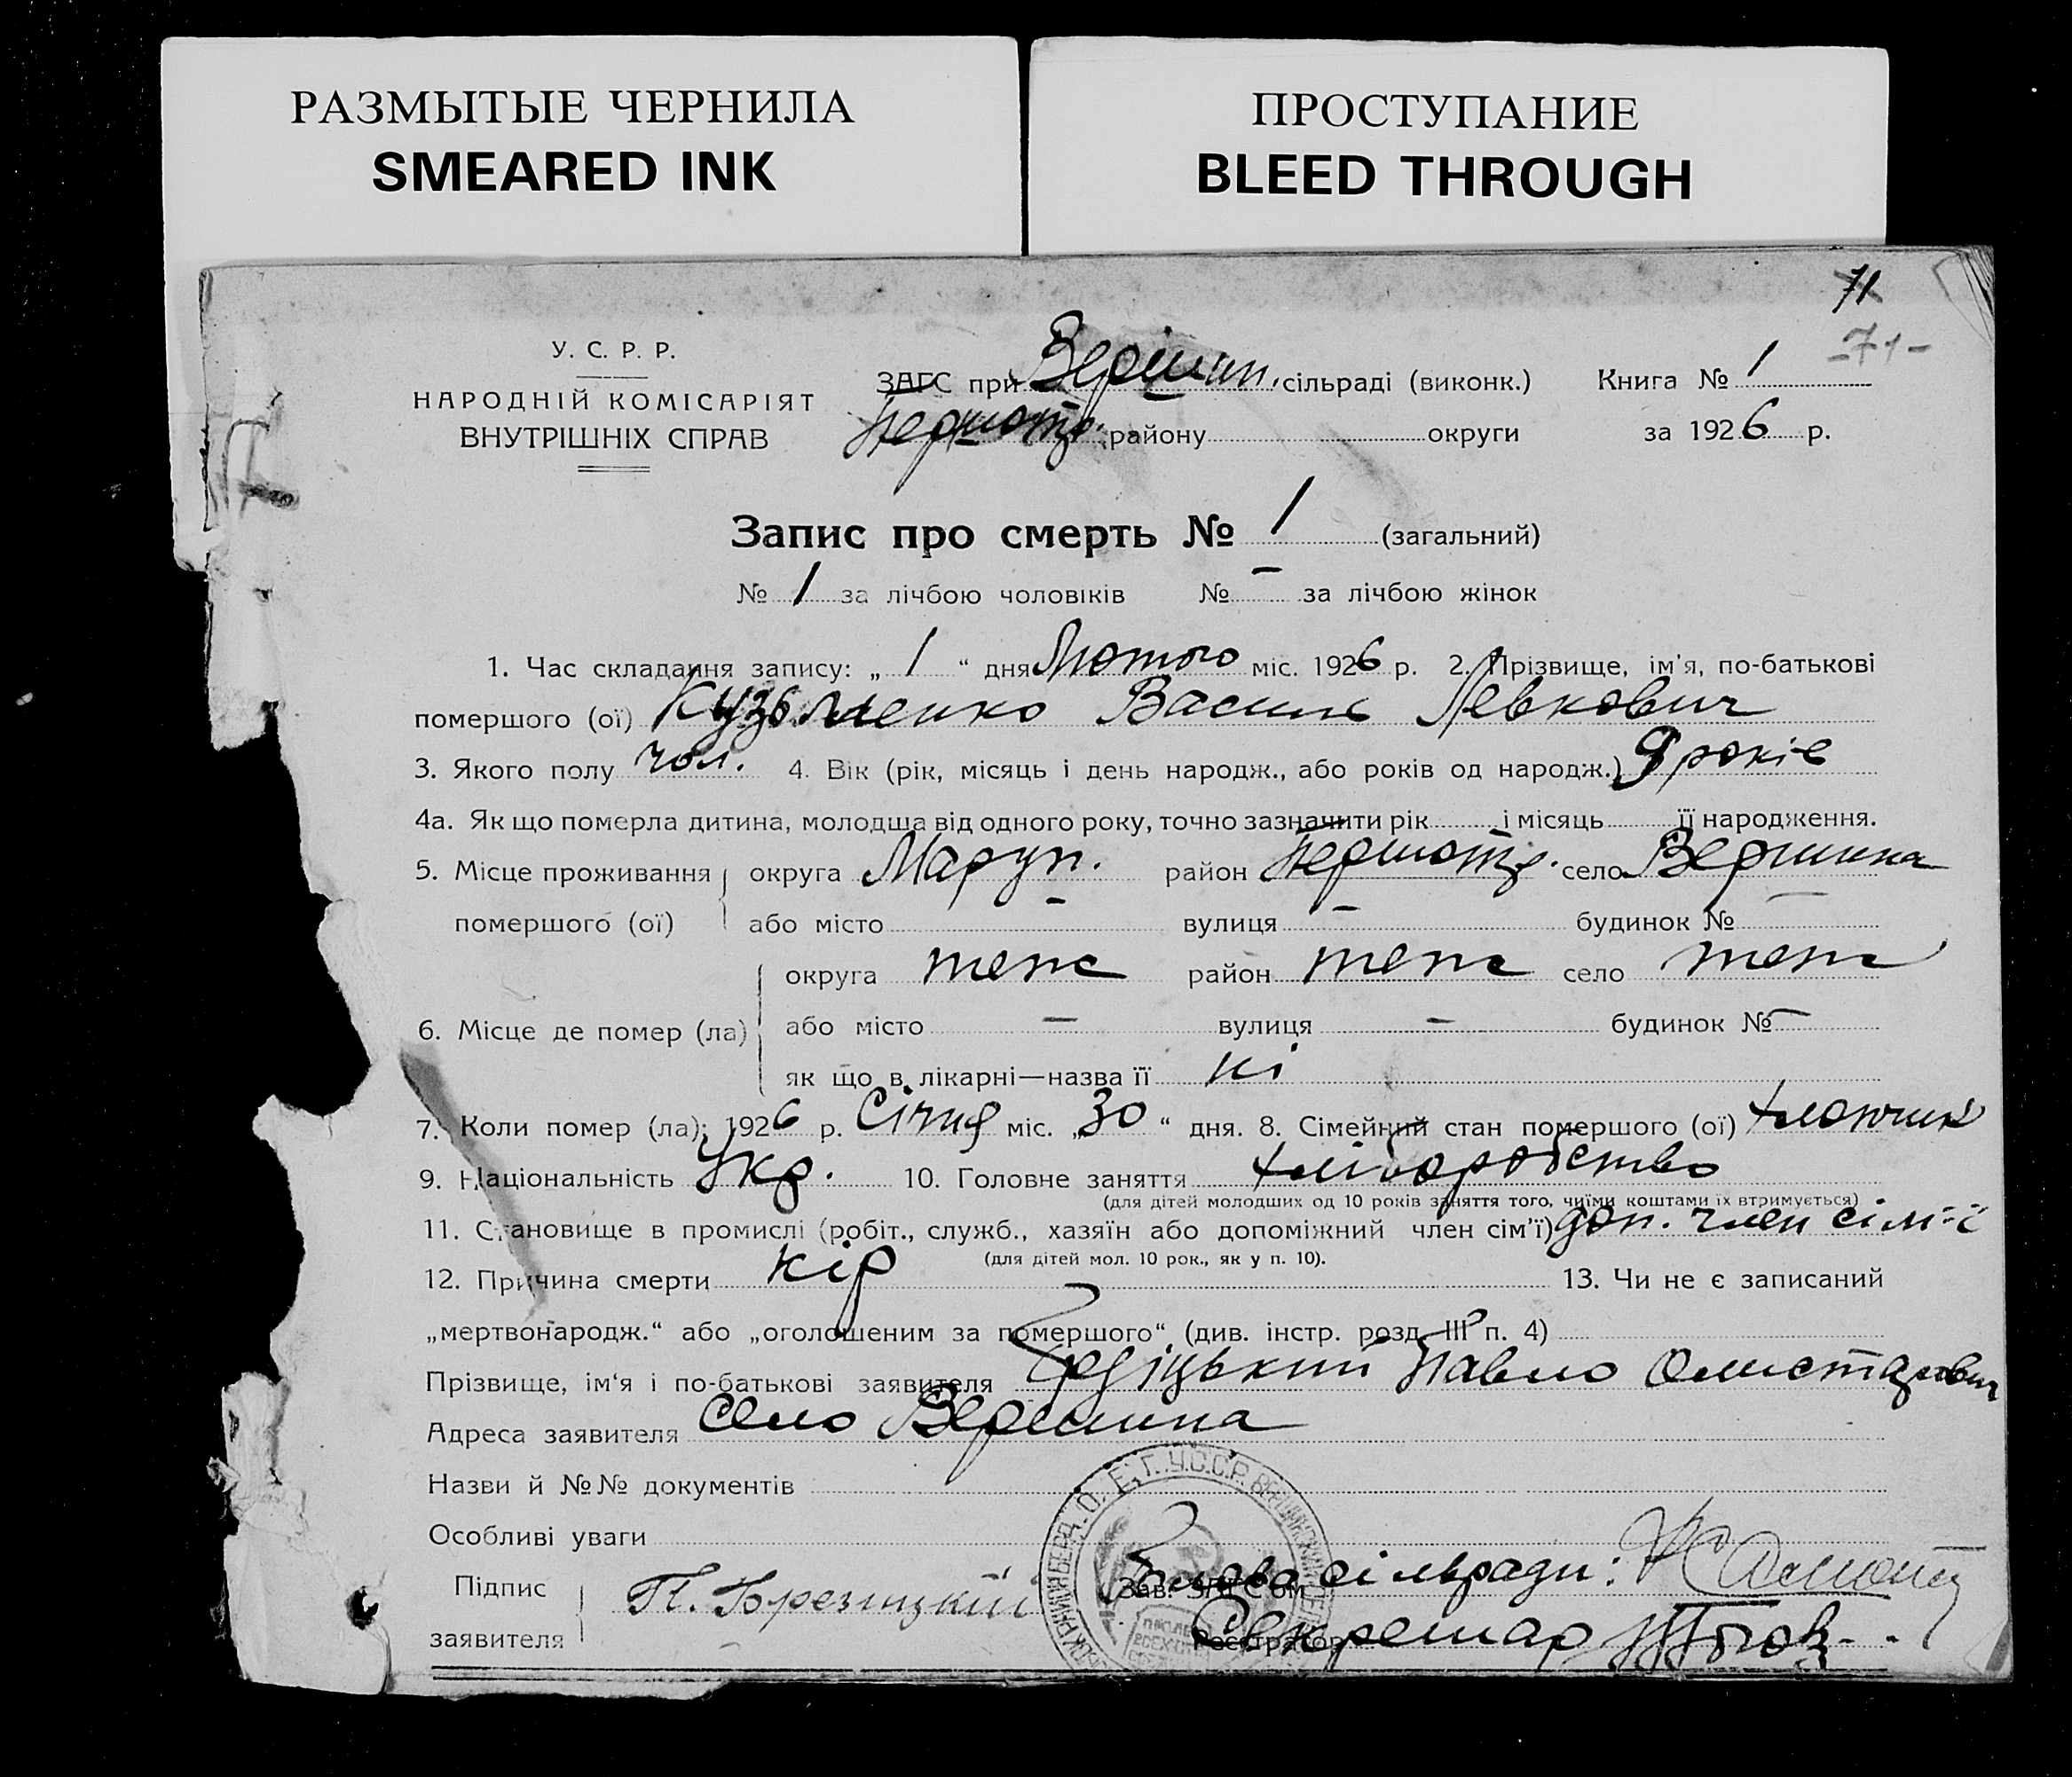 РАЗМЫТЫЕ ЧЕРНИЛА
SMEARED INK
ПРОСТУПАНИЕ
BLEED THROUGH
71
-71-
У. С. Р. Р.
НАРОДНІЙ КОМІСАРІЯТ
ВНУТРІШНІХ СПРАВ
ЗАГС при Вершин. сільраді (виконк.) Книга № 1
району округи за 1926 р.
Запис про смерть № 1 (загальний)
№ 1 за лічбою чоловіків № – за лічбою жінок
1. Час складання запису: „ 1 “ дня Лютого міс. 1926 р. 2. Прізвище, ім'я, по-батькові
помершого (ої) Кузьменко Василь Левкович
3. Якого полу чол. 4. Вік (рік, місяць і день народж., або років од народж.) 9 років
4а. Як що померла дитина, молодша від одного року, точно зазначити рік і місяць її народження.
5. Місце проживання округа Маруп. район село Вершина
помершого (ої) або місто – вулиця – будинок № –
округа теж район теж село теж
6. Місце де помер (ла) або місто – вулиця – будинок № –
як що в лікарні—назва її ні
7. Коли помер (ла): 1926 р. Січня міс. „ 30 “ дня. 8. Сімейний стан помершого (ої) хлопчик
9. Національність Укр. 10. Головне заняття хліборобство
(для дітей молодших од 10 років заняття того, чиїми коштами їх втримується)
11. Становище в промислі (робіт., служб., хазяїн або допоміжний член сім'ї) доп. член сім'ї
(для дітей мол. 10 рок., як у п. 10).
12. Причина смерти кір 13. Чи не є записаний
„мертвонародж.“ або „оголошеним за помершого“ (див. інстр. розд. III п. 4)
Прізвище, ім'я і по-батькові заявителя Павло
Адреса заявителя Село Вершина
Назви й №№ документів
Особливі уваги
Підпис
заявителя П. Брезицкий
Зав. ЗАГСом Голова сільради:
Реєстратор Секретар
У.С.С.Р.